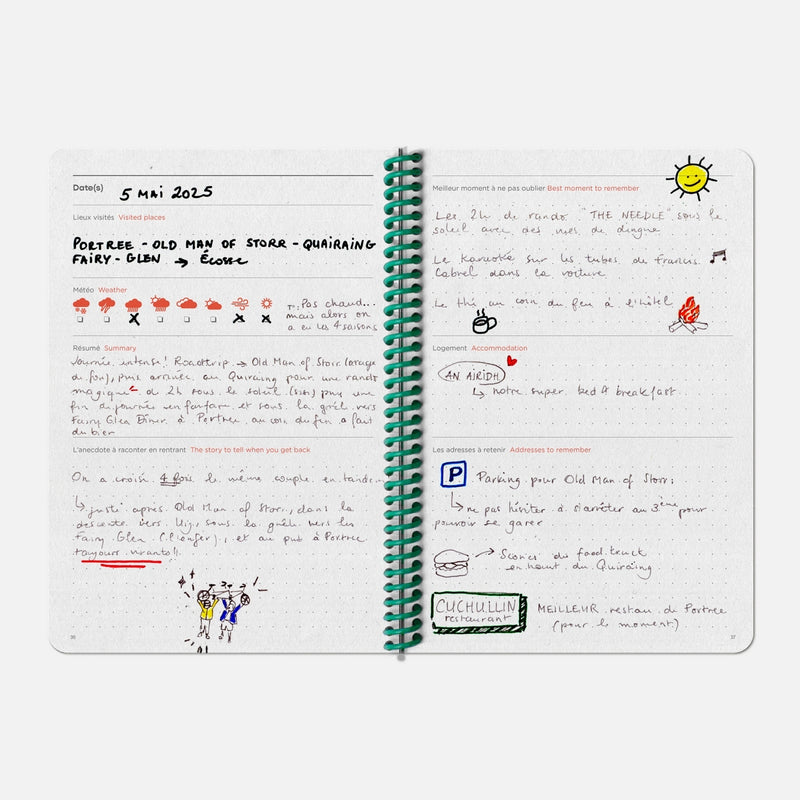 Date(s) 5 MAI 2025
Lieux visités Visited places
PORTREE - OLD MAN OF STORR - QUAIRAING
FAIRY - GLEN → Écosse
Météo Weather
T°: Pas chaud...
mais alors on
a eu les 4 saisons
Résumé Summary
Journée intense! Roadtrip → Old Man of Storr (orage
du fun), puis arrivée au Quiraing pour une rando
magique de 2h sous le soleil (sisi) puis une
fin de journée en fanfare et sous la grêle vers
Fairy Glen Dîner à Portree au coin du feu a fait
du bien
L'anecdote à raconter en rentrant The story to tell when you get back
On a croisé 4 fois le même couple en tandem
↳ juste après Old Man of Storr, dans la
descente vers Uig, sous la grêle vers les
Fairy Glen, et au pub à Portree
toujours vivants!!
36
Meilleur moment à ne pas oublier Best moment to remember
Les 2h de rando "THE NEEDLE" sous le
soleil avec des vues de dingue
Le Karaoké sur les tubes de Francis
Cabrel dans la voiture
Le thé au coin du feu à l'hôtel
Logement Accommodation
AN AIRIDH
↳ notre super bed & breakfast
Les adresses à retenir Addresses to remember
P Parking pour Old Man of Storr:
↳ ne pas hésiter à s'arrêter au 3ème pour
pouvoir se garer
→ Scones du food truck
en haut du Quiraing
CUCHULLIN
restaurant
MEILLEUR restau de Portree
(pour le moment)
37